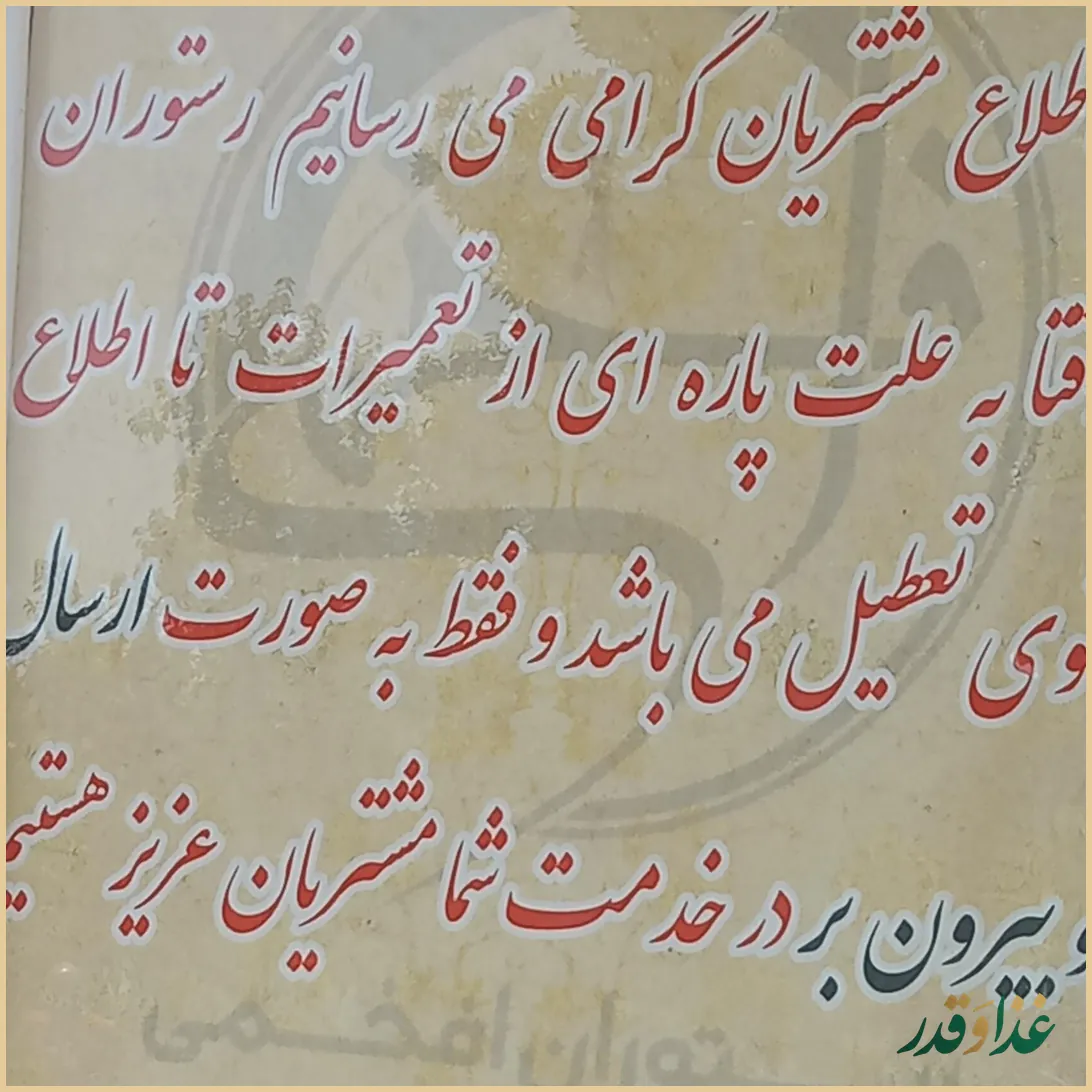 طلاع مشتریان گرامی می رسانیم رستوران
قتا به علت پاره ای از تعمیرات تا اطلاع
وی تعطیل می باشد و فقط به صورت ارسال
و بیرون بر در خدمت شما مشتریان عزیز هستیم
توران افخمی
غذا و قدر